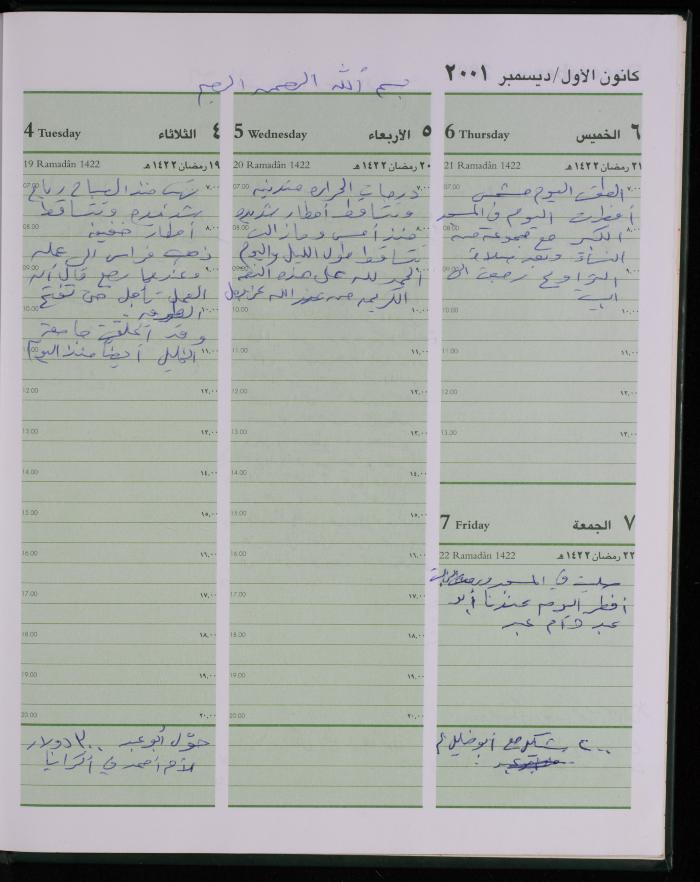 كانون الأول/ديسمبر ٢٠٠١
بسم الله الرحمن الرحيم
4 Tuesday الثلاثاء ٤
19 Ramadân 1422 ١٩ رمضان ١٤٢٢هـ
07.00 ٧.٠٠
تهب منذ الصباح رياح
شديدة وتتساقط
08.00 ٨.٠٠
أمطار خفيفة
ذهب فراس الى عمله
09.00 ٩.٠٠
وعندما رجع قال أن
العمل تأجل حتى تفتح
10.00 ١٠.٠٠
الطرق.
وقد أغلقت جامعة
11.00 ١١.٠٠
الخليل أيضا منذ اليوم
12.00 ١٢.٠٠
13.00 ١٣.٠٠
14.00 ١٤.٠٠
15.00 ١٥.٠٠
16.00 ١٦.٠٠
17.00 ١٧.٠٠
18.00 ١٨.٠٠
19.00 ١٩.٠٠
20.00 ٢٠.٠٠
حوّل أبو عبد ٣٠٠ دولار
لأم أحمد في أكرانيا
5 Wednesday الأربعاء ٥
20 Ramadân 1422 ٢٠ رمضان ١٤٢٢هـ
07.00 ٧.٠٠
درجات الحرارة متدنية
وتتساقط أمطار شديدة
08.00 ٨.٠٠
منذ أمس وما زالت
تتساقط طول الليل واليوم
09.00 ٩.٠٠
الحمد لله على هذه النعم
الكريمة من عند الله عز وجل
10.00 ١٠.٠٠
11.00 ١١.٠٠
12.00 ١٢.٠٠
13.00 ١٣.٠٠
14.00 ١٤.٠٠
15.00 ١٥.٠٠
16.00 ١٦.٠٠
17.00 ١٧.٠٠
18.00 ١٨.٠٠
19.00 ١٩.٠٠
20.00 ٢٠.٠٠
6 Thursday الخميس ٦
21 Ramadân 1422 ٢١ رمضان ١٤٢٢هـ
07.00 ٧.٠٠
الطقس اليوم مشمس
أفطرت اليوم في المسجد
08.00 ٨.٠٠
الكبير مع مجموعة من
النساء وبعد صلاة
09.00 ٩.٠٠
التراويح رجعت الى
البيت
10.00 ١٠.٠٠
11.00 ١١.٠٠
12.00 ١٢.٠٠
13.00 ١٣.٠٠
7 Friday الجمعة ٧
22 Ramadân 1422 ٢٢ رمضان ١٤٢٢هـ
صليت في المسجد
أفطر اليوم عندنا أبو
عبد وأم عبد
٢٠٠ شيكل مع أبو خليل